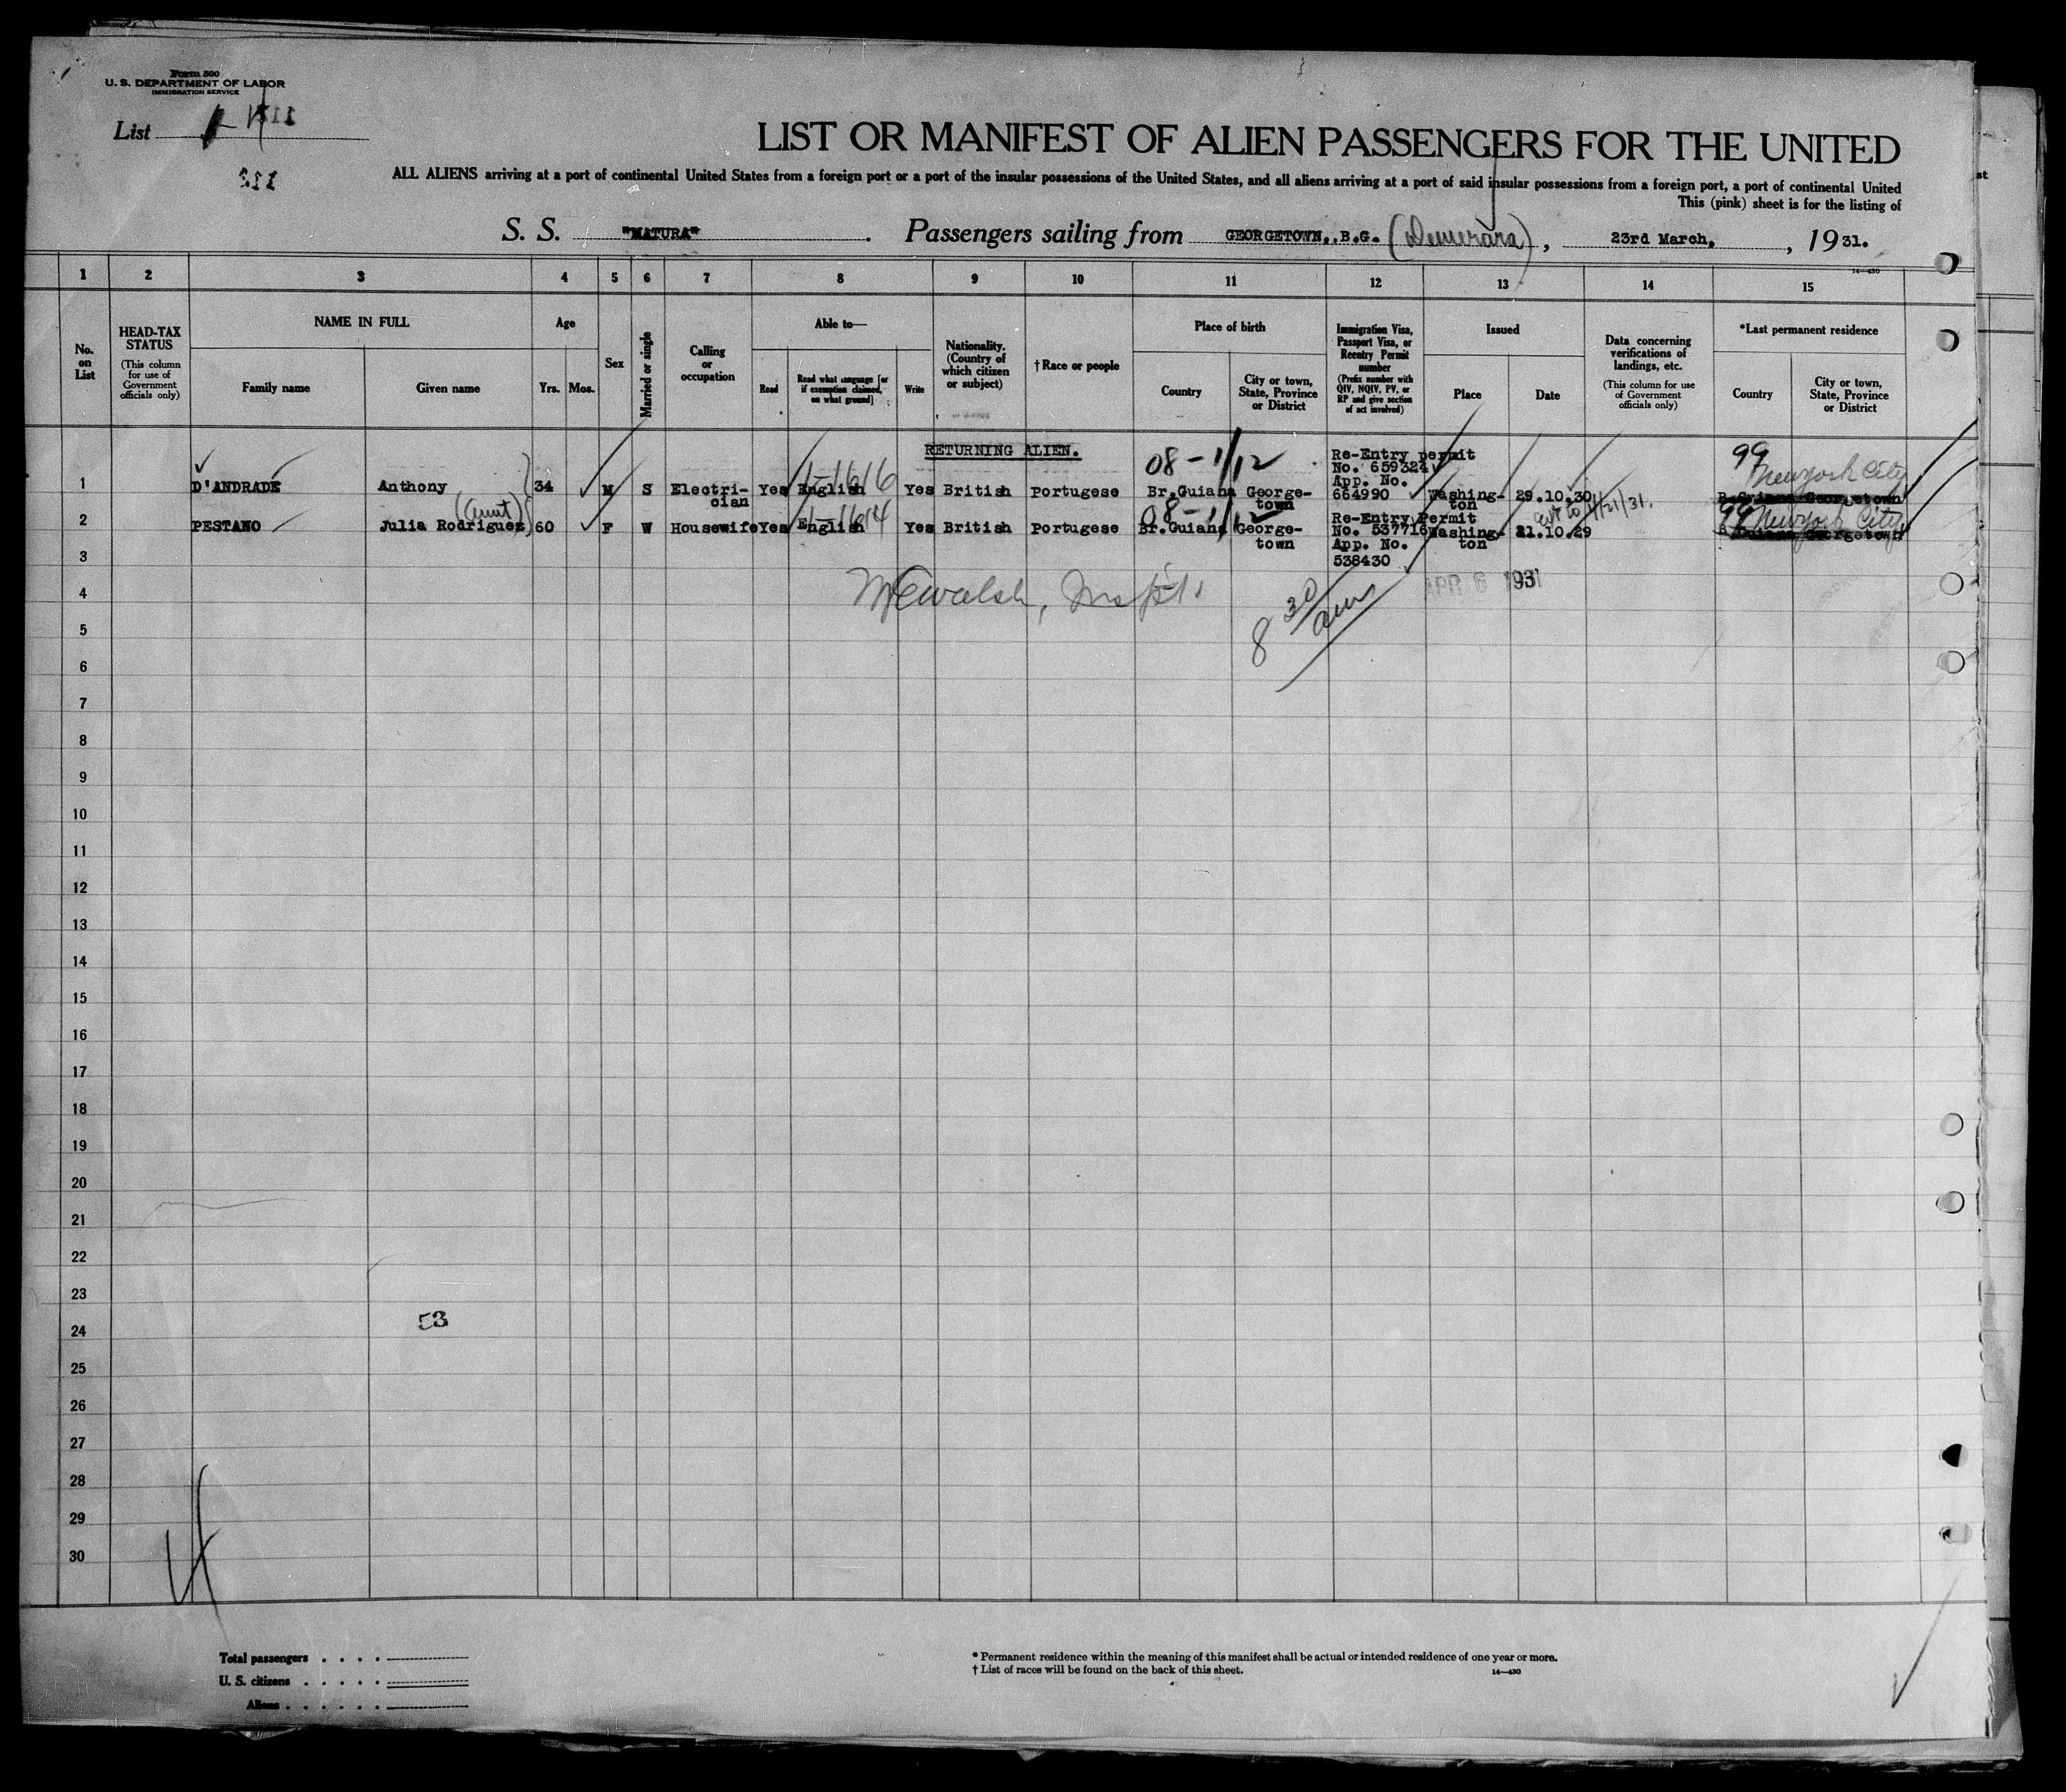 Form 500
U. S. DEPARTMENT OF LABOR
IMMIGRATION SERVICE
List
LIST OR MANIFEST OF ALIEN PASSENGERS FOR THE UNITED
ALL ALIENS arriving at a port of continental United States from a foreign port or a port of the insular possessions of the United States, and all aliens arriving at a port of said insular possessions from a foreign port, a port of continental United
This (pink) sheet is for the listing of
S. S. "MATURA". Passengers sailing from GEORGETOWN, B.G. (Demerara), 23rd March, 1931.
14—430
1 2 3 4 5 6 7 8 9 10 11 12 13 14 15
No. on List
HEAD-TAX STATUS
(This column for use of Government officials only)
NAME IN FULL
Family name
Given name
Age
Yrs. Mos.
Sex
Married or single
Calling or occupation
Able to—
Read
Read what language [or if exemption claimed, on what ground]
Write
Nationality. (Country of which citizen or subject)
†Race or people
Place of birth
Country
City or town, State, Province or District
Immigration Visa, Passport Visa, or Reentry Permit number
(Prefix number with QIV, NQIV, PV, or RP and give section of act involved)
Issued
Place
Date
Data concerning verifications of landings, etc.
(This column for use of Government officials only)
*Last permanent residence
Country
City or town, State, Province or District
RETURNING ALIEN.
08-1/12
99
New York City
1 D'ANDRADE Anthony 34 M S Electrician Yes English Yes British Portugese Br.Guiana Georgetown Re-Entry permit No. 659324 App. No. 664990 Washington 29.10.30 B.Guiana Georgetown
1-1616
(Aunt)
1-1614
08-1/12
99 New York City
2 PESTANO Julia Rodriguez 60 F W Housewife Yes English Yes British Portugese Br.Guiana Georgetown Re-Entry Permit No. 537716 App. No. 538430 Washington 21.10.29 B.Guiana Georgetown
3
4
APR 6 1931
8 30 am
5
6
7
8
9
10
11
12
13
14
15
16
17
18
19
20
21
22
23
53
24
25
26
27
28
29
30
Total passengers
U. S. citizens
Aliens
* Permanent residence within the meaning of this manifest shall be actual or intended residence of one year or more.
† List of races will be found on the back of this sheet.
14—430